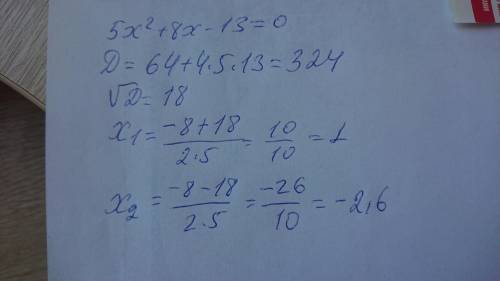 5x²+8x-13=0
D=64+4.5.13=324
√D=18
x₁=-8+18/2.5=10/10=1
x₂=-8-18/2.5=-26/10=-2,6